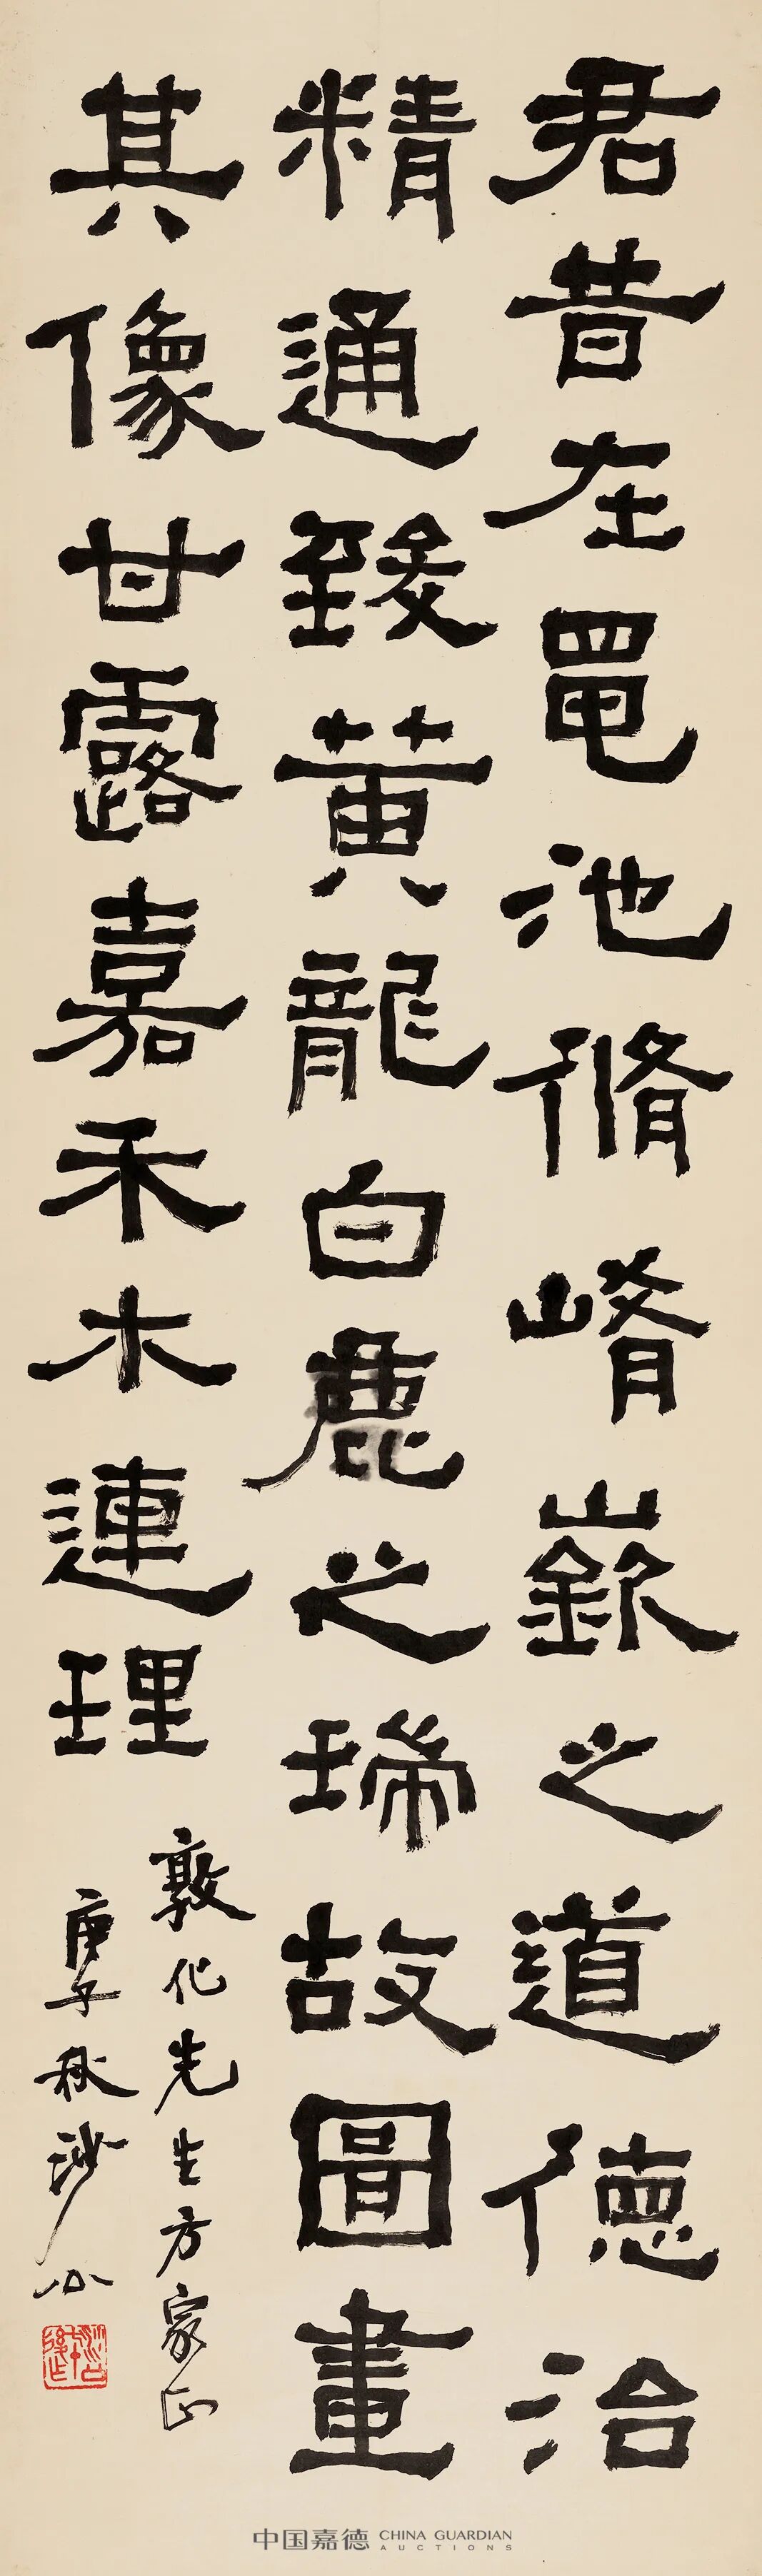 君昔在黽池脩崤嶔之道德治
精通致黄龍白鹿之瑞故圖畫
其像甘露嘉禾木連理
敦化先生方家正
庚子秋沙公
中国嘉德 CHINA GUARDIAN
AUCTIONS